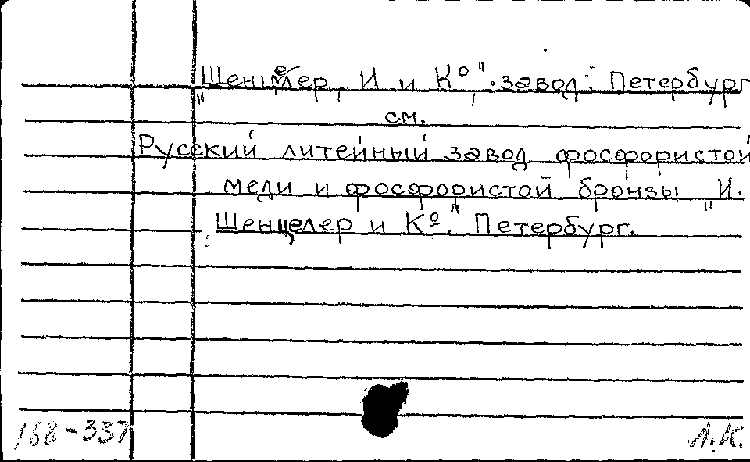 „Шенцелер, И и К⁰". завод. Петербург
см.
Русский литейный завод фосфористой
меди и фосфористой бронзы „И.
Шенцелер и К⁰." Петербург.
168-337 Л.К.